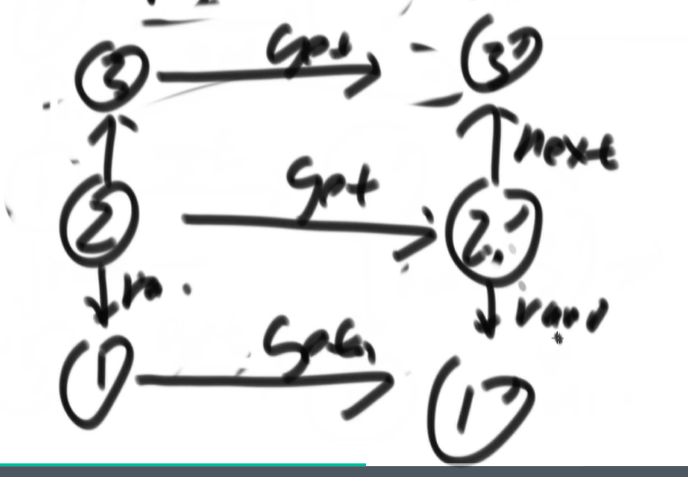 3 get 3'
next
2 get 2'
ra. rand
1 get 1'